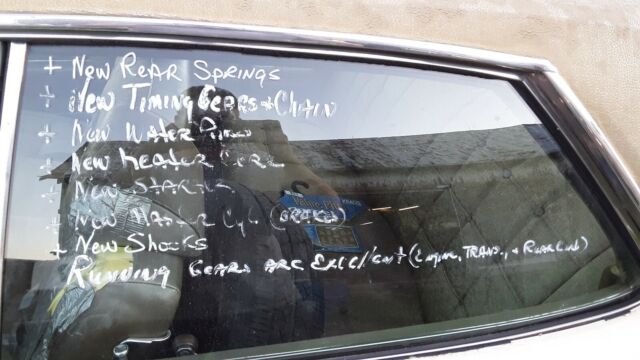 + New Rear Springs
+ New Timing Gears + Chain
+ New Water Pump
+ New Heater Core
+ New Starter
+ New Master Cyl (BRAKES)
+ New Shocks
Running Gears are Excellent (Engine, Trans., + Rear End)
Value-Plus